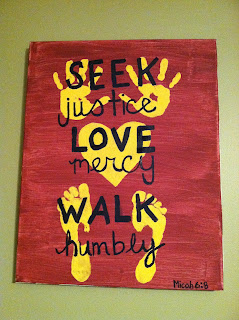 SEEK
justice
LOVE
mercy
WALK
humbly
Micah 6:8